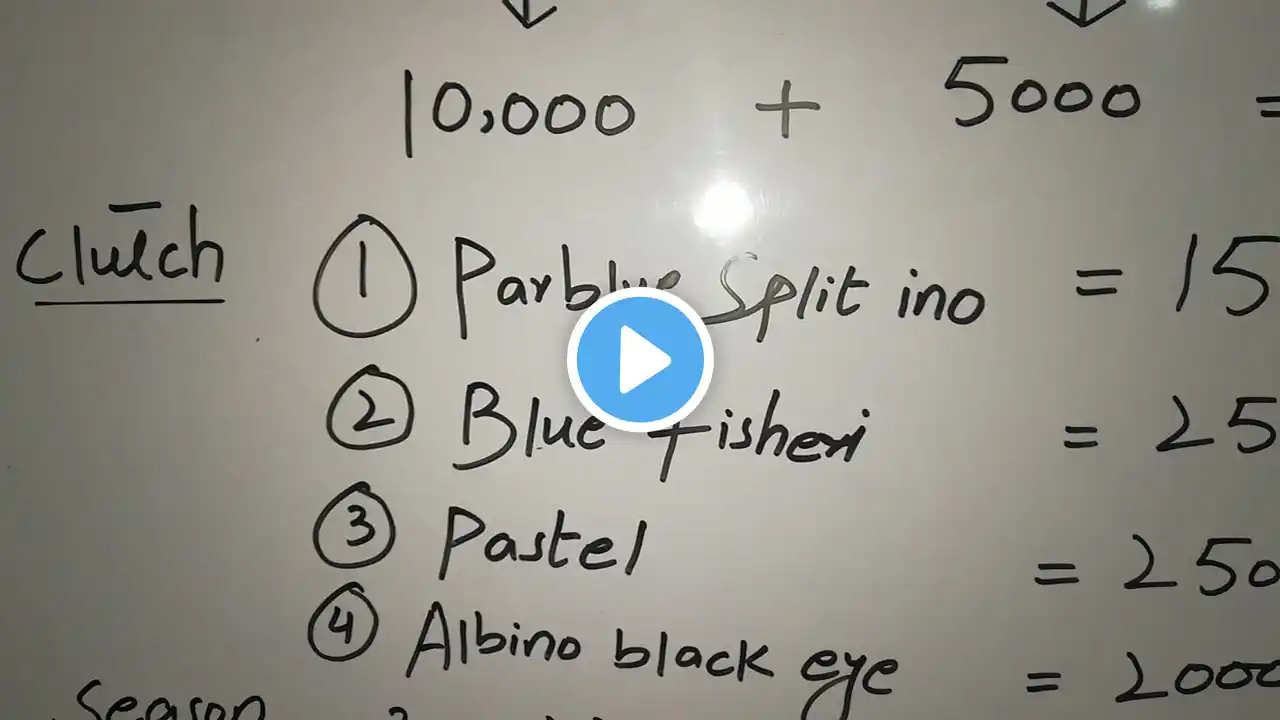 10,000 + 5000 =
Clutch ① Parblue Split ino = 15
② Blue fisheri = 25
③ Pastel = 250
④ Albino black eye = 2000
Season